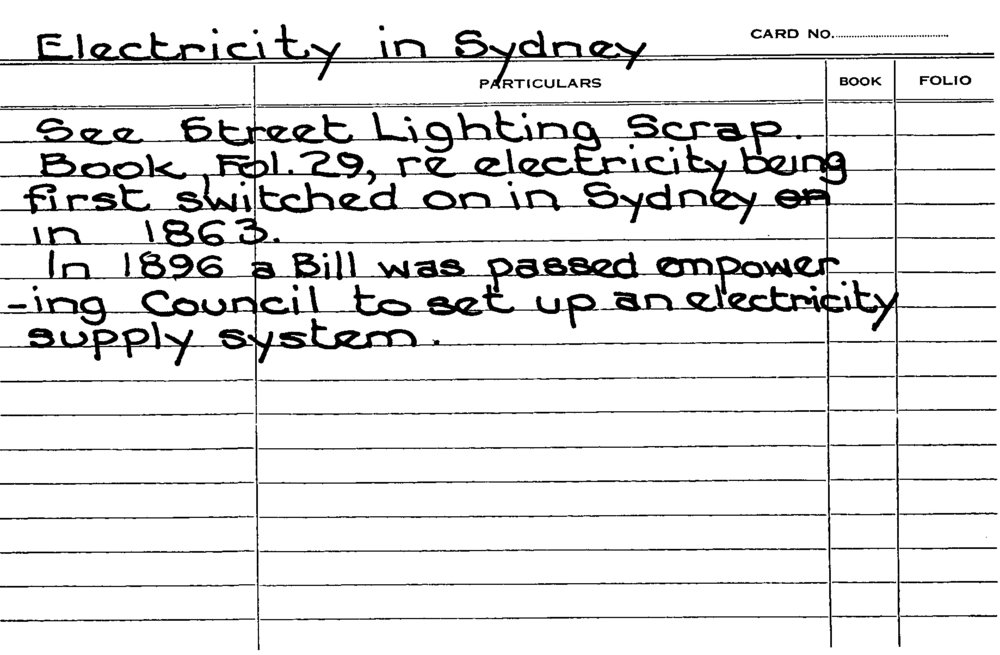 Electricity in Sydney
CARD No.
PARTICULARS BOOK FOLIO
See Street Lighting Scrap.
Book, Fol. 29, re electricity being
first switched on in Sydney on
in 1863.
In 1896 a Bill was passed empower
-ing Council to set up an electricity
supply system.